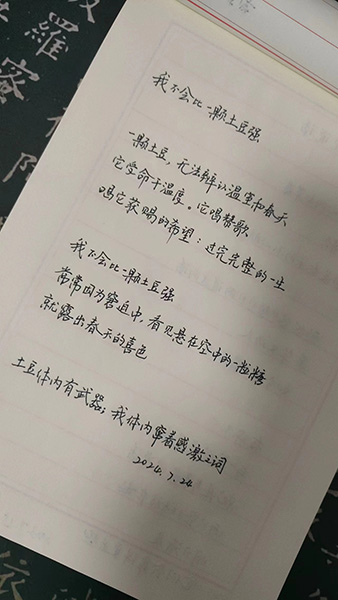 我不会比一颗土豆强
一颗土豆，无法辨认温室和春天
它受命于温度。它唱赞歌
唱它获赐的希望：过完完整的一生
我不会比一颗土豆强
常常因为窘迫中，看见悬在空中的一糖
就露出春天的喜色
土豆体内有武器；我体内着感激之词
2024.7.24
羅
蜜
依